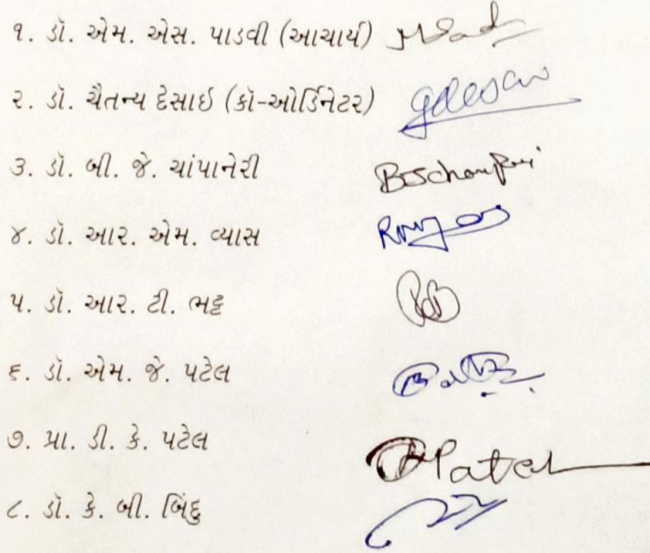 ૧. ડૉ. એમ. એસ. પાડવી (આચાર્ય)
૨. ડૉ. ચૈતન્ય દેસાઇ (કૉ-ઓર્ડિનેટર) gdesai
૩. ડૉ. બી. જે. ચાંપાનેરી
૪. ડૉ. આર. એમ. વ્યાસ
૫. ડૉ. આર. ટી. ભટ્ટ
૬. ડૉ. એમ. જે. પટેલ
૭. પ્રા. ડી. કે. પટેલ Patel
૮. ડૉ. કે. બી. બિંદુ